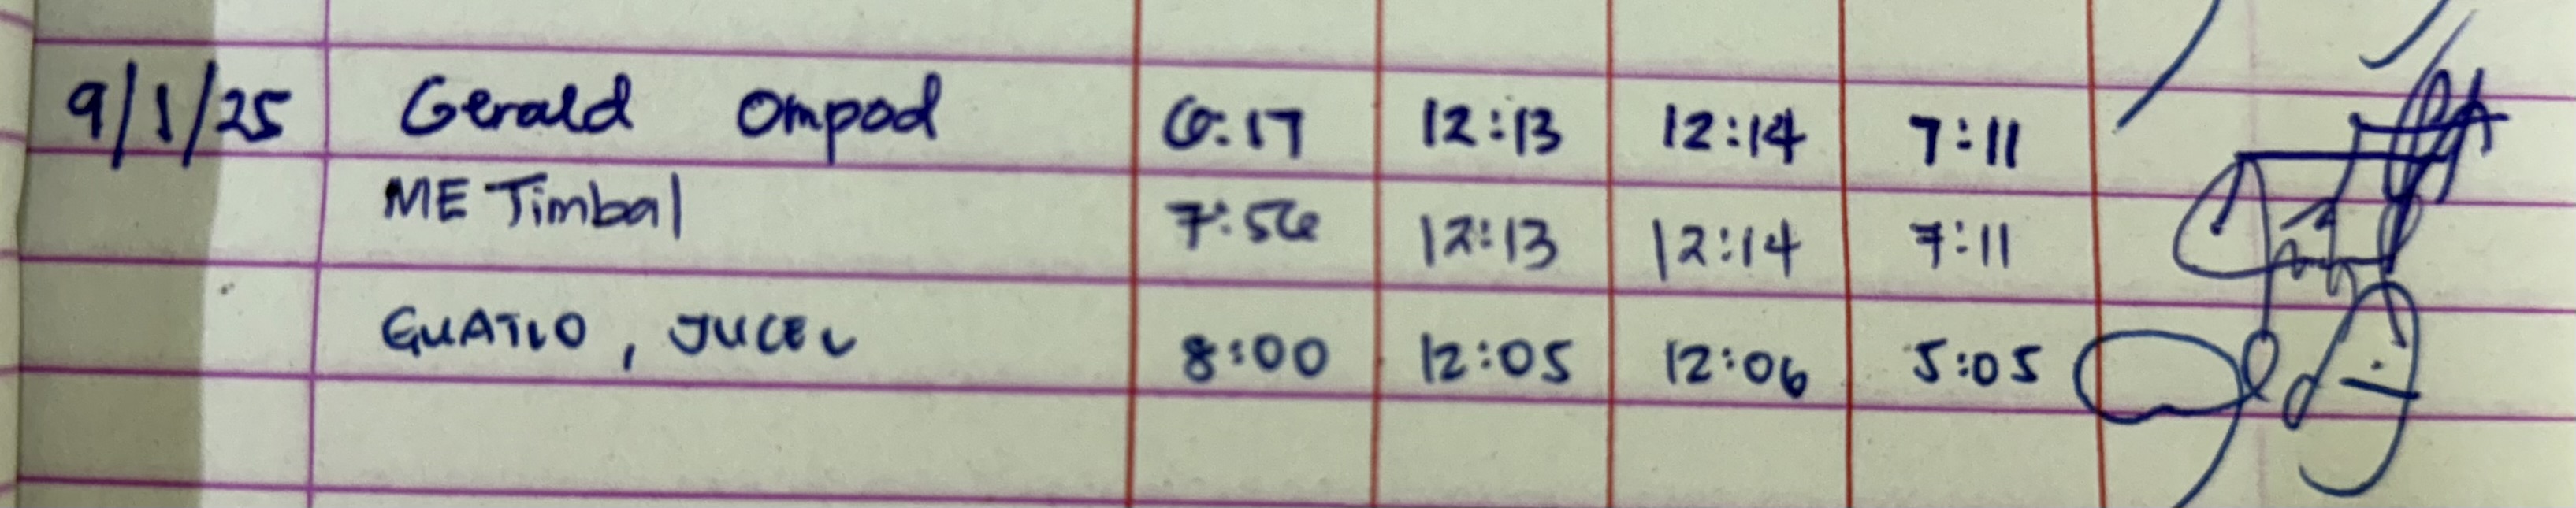 9/1/25 Gerald Ompod 6:17 12:13 12:14 7:11
ME Timbal 7:56 12:13 12:14 7:11
GUATLO, JUCEL 8:00 12:05 12:06 5:05